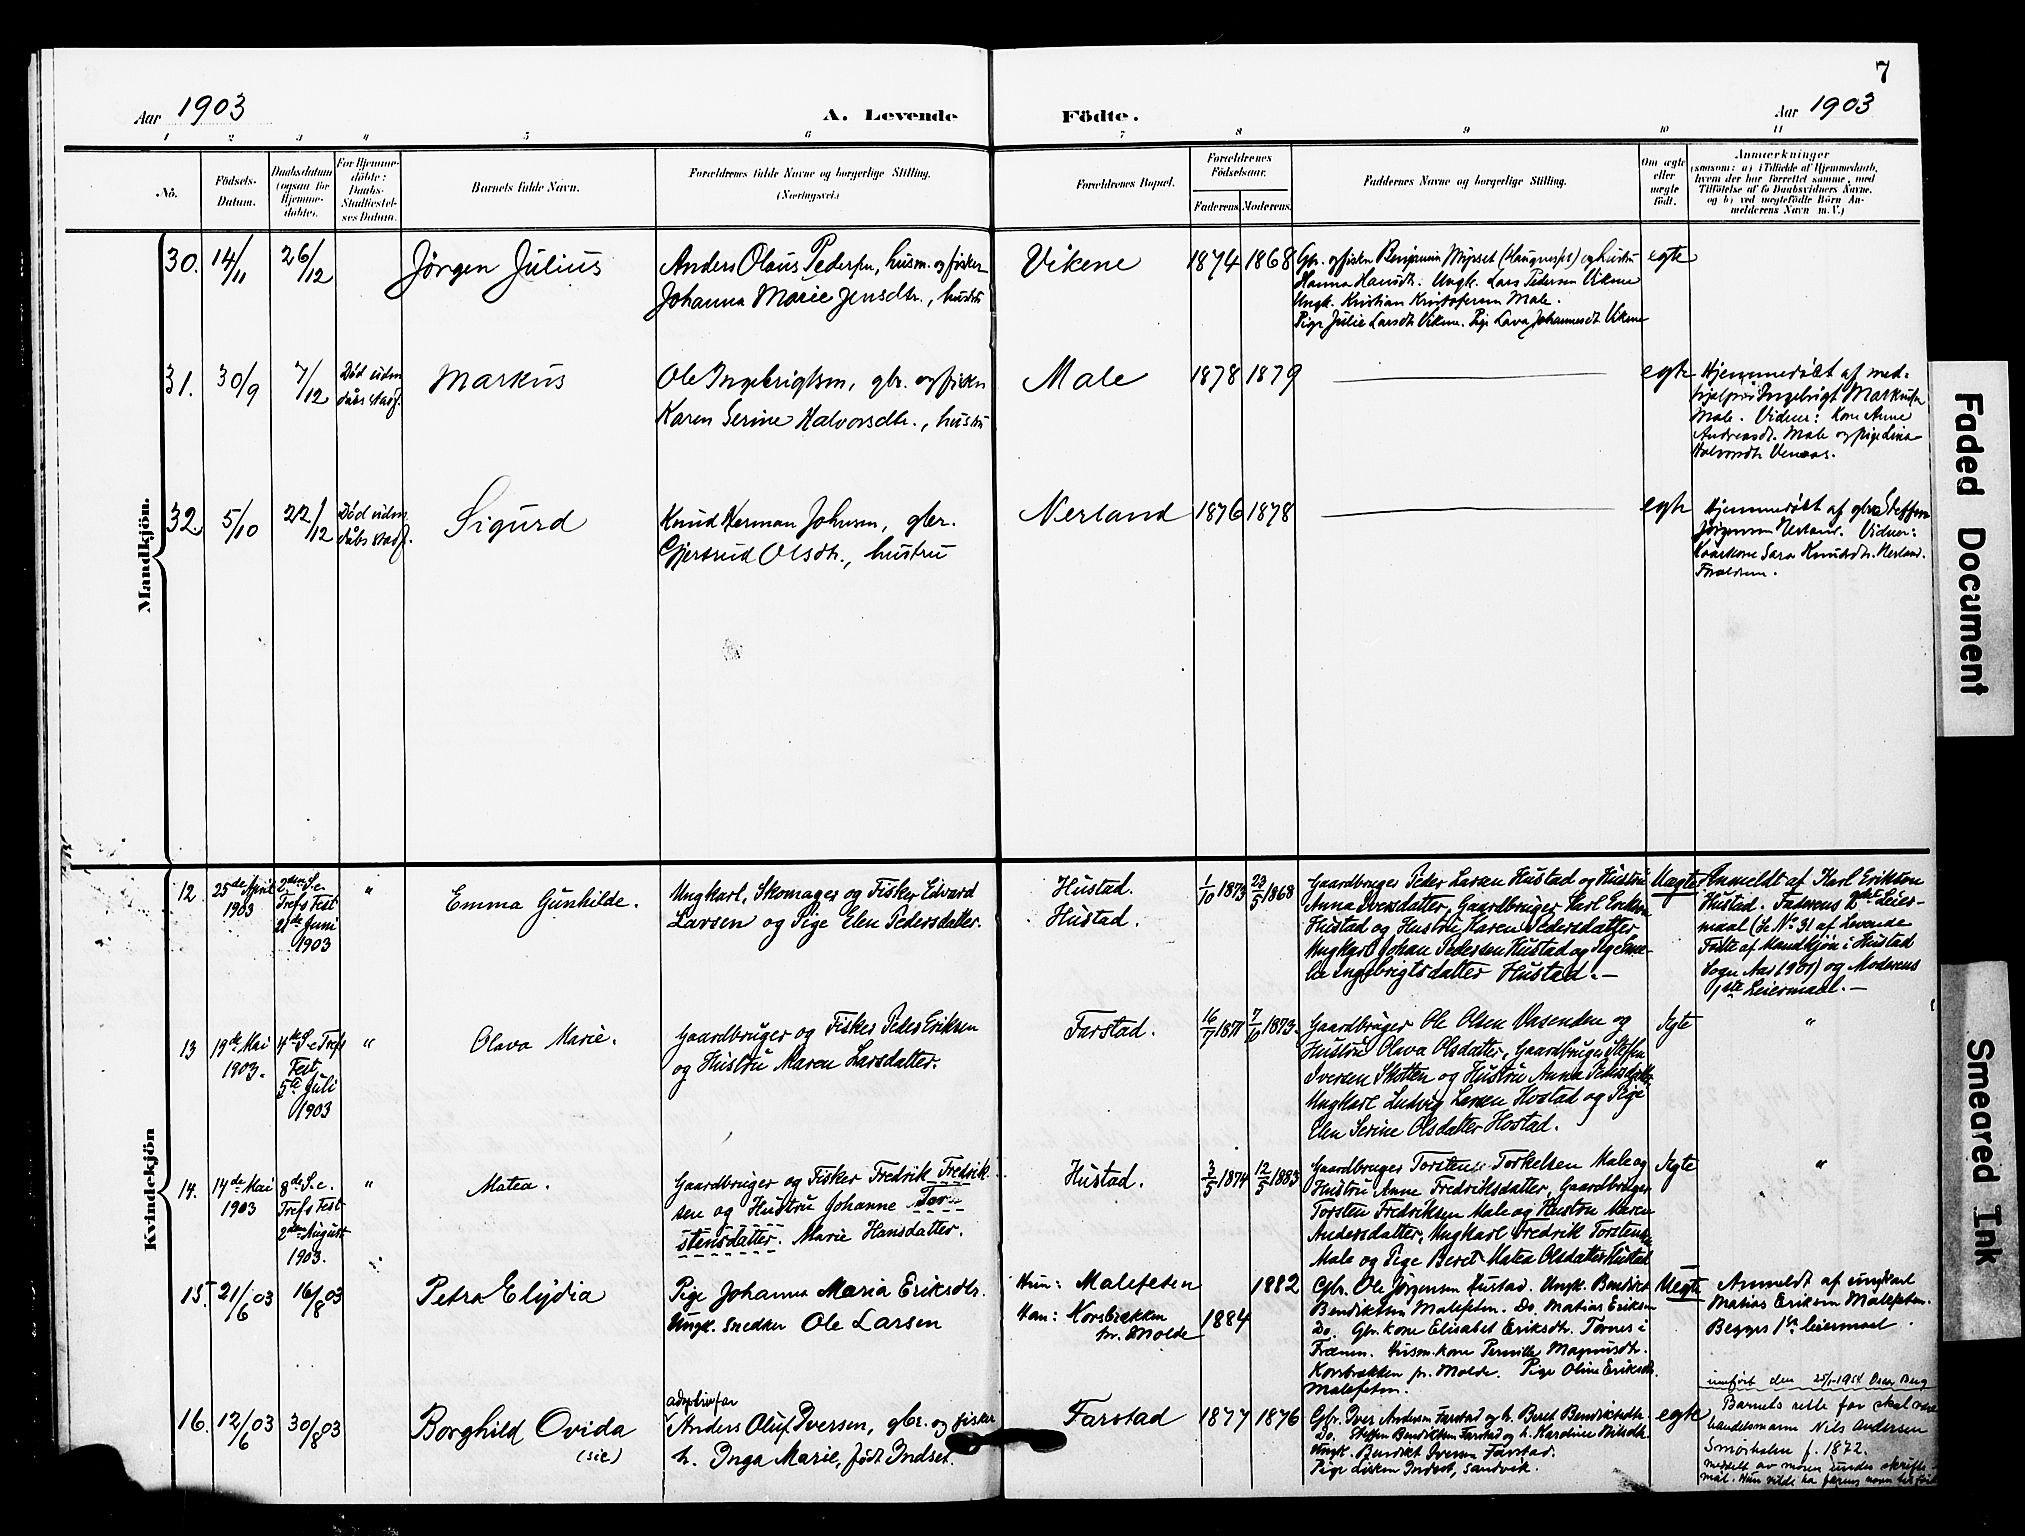 7
Aar 1903
A. Levende Födte.
Aar 1903
1 2 3 4 5 6 7 8 9 10 11
No.
Födsels-Datum.
Daabsdatum (ogsaa for Hjemme-døbte).
For Hjemme-döbte: Daabs-Stadfæstel-ses Datum.
Barnets fulde Navn.
Forældrenes fulde Navne og borgerlige Stilling. (Næringsvei.)
Forældrenes Bopæl.
Forældrenes Fødselsaar.
Faderens. Moderens.
Faddernes Navne og borgerlige Stilling.
Om ægte eller uægte født.
Anmærkninger
(saasom: a) i Tilfælde af Hjemmedaab,
hvem der har forrettet samme, med
Tilföielse af to Daabsvidners Navne,
og b) ved uægtefödte Börn An-
melderens Navn m. V.)
Mandkjön.
30. 14/11 26/12 Jørgen Julius
Anders Olaus Pedersen, husm. og fisker
Johanna Marie Jensdtr., hustru
Vikene 1874 1868
Gbr. og fisker Benjamin (Haugnesset) og hustru
Hanna Hansdtr. Ungk. Lars Pedersen Vikene
Ungk. Kristian Kristofersen Male.
Pige Julie Larsdtr Vikene. Pige Lava Johannesdt Vikene
egte
31. 30/9 7/12 Død uden dåbs stadf. Markus
Ole Ingebrigtsen, gbr. og fisker
Karen Serine Halvorsdtr., hustru
Male 1878 1879 egte
Hjemmedøbt af med-
hjelper Ingebrigt Markussen
Male. Vidner: Kone Anne
Andreasdt. Male og pige Lina
Halvorsdtr Venaas.
32. 5/10 22/12 Død uden dåbs stadf. Sigurd
Knud Herman Johnsen, gbr.
Gjertrud Olsdtr., hustru
Nerland 1876 1878 egte
Hjemmedøbt af gbr. Steffen
Jørgensen Nerland. Vidner:
Kaarkone Sara Knudsdtr. Nerland.
Forældrene.
Kvindekjön
12 25de April 1903 2den S. e. Trefs Fest 21de Juni 1903 " Emma Gunhilde.
Ungkarl, Skomager og Fisker Edvard
Larsen og Pige Elen Pedersdatter.
Hustad.
Hustad.
1/10 1873 23/5 1868
Gaardbruger Peder Larsen Hustad og Hustru
Anna Iversdatter, Gaardbruger Karl Eriksen
Hustad og Hustru Karen Pedersdatter
Ungkarl Johan Pedersen Hustad og Pige
Ingebrigtsdatter Hustad.—
Uægte
Anmeldt af Karl Eriksen
Hustad. Faderens 2det Leier-
maal (se No 31 af Levende
Födte af Mandkjøn i Hustad
Sogn Aar 1901) og Moderens
1ste Leiermaal.—
13 19de Mai 1903. 4de S. e. Trefs Fest, 5te Juli 1903 " Olava Marie.
Gaardbruger og Fisker Peder Eriksen
og Hustru Maren Larsdatter.
Farstad. 16/7 1871 7/10 1873.
Gaardbruger Ole Olsen Vasenden og
Hustru Olava Olsdatter, Gaardbruger Steffen
Iversen Skotten og Hustru Anna Pedersdatter
Ungkarl Ludvig Larsen Hostad og Pige
Elen Serine Olsdatter Hostad.
Ægte "
14. 14de Mai 1903 8de S. e. Trefs Fest 2den August 1903. " Matea.
Gaardbruger og Fisker Fredrik Fredrik-
sen og Hustru Johanne Tor-
stensdatter. Marie Hansdatter.
Hustad. 3/5 1874 12/5 1883
Gaardbruger Torsten Torkelsen Male og
Hustru Anne Fredriksdatter, Gaardbruger
Torsten Fredriksen Male og Hustru Maren
Andersdatter, Ungkarl Fredrik Torstensen
Male og Pige Beret Matea Olsdatter Hustad
Ægte "
15. 21/6 03 16/8 03 Petra Elydia
Pige Johanna Maria Eriksdtr.
Ungk. Snedker Ole Larsen
Hun: Malefeten 1882
Han: Korsbrækken pr. Molde 1884
Gbr. Ole Jørgensen Hustad. Ungk. Bendikt
Bendiktsen Malefeten. Do. Matias Eriksen
Do. Gbr. kone Elisabet Eriksdtr. Tornes i
Frænen. Husm. kone Pernille Magnusdtr.
Korsbrækken pr. Molde. Pige Oline Eriksdt.
Malefeten.
Uegte
Anmeldt af ungkarl
Matias Eriksen Malefeten.
Begges 1ste leiermaal.
16. 12/6 03 30/8 03 Borghild Ovida
(sic)
adoptivfar
Anders Oluf Iversen, gbr. og fisker
h. Inga Marie, født Indset.
Farstad 1877 1876
Gbr. Iver Andersen Farstad og h. Beret Bendiktsdtr.
Do. Steffen Bendiktsen Farstad og h. Karoline Nilsdtr.
Ungk. Bendikt Iversen Farstad.
Pige Lisken Indset, Sandvik.
egte
innført den 25/1-1954 Oscar Berg
Barnets rette far skal være
handelsmann Nils Andersen
Smørhalen f. 1872.
meddelt av moren under skrifte-
mål. Hun vilde ha farens navn
Faded Document
Smeared Ink